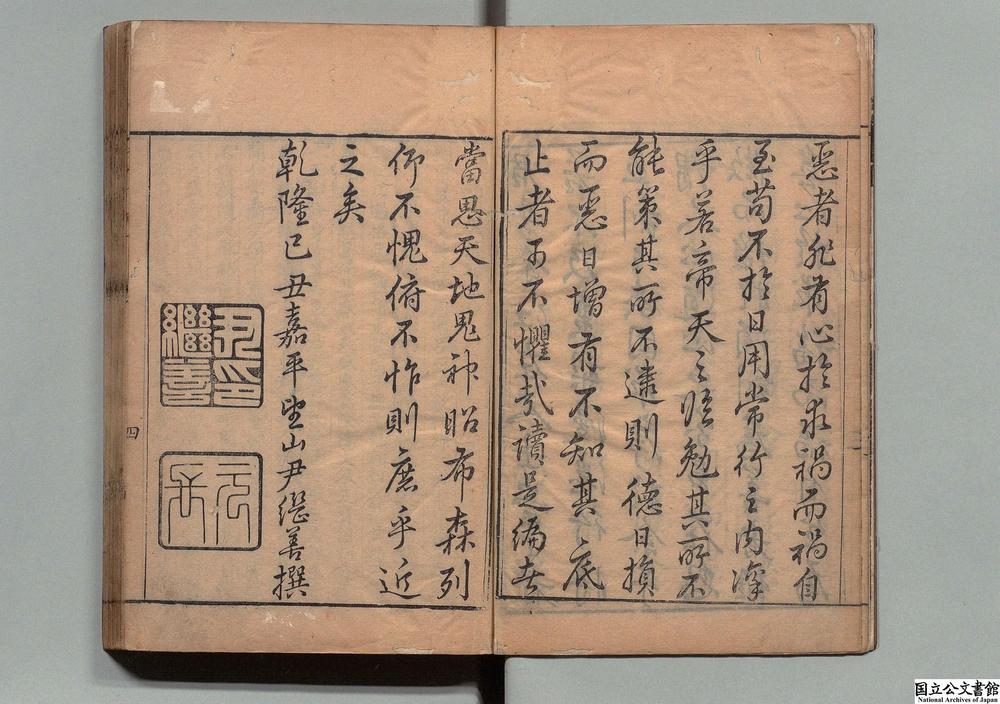 惡者非有心於求禍而禍自
至苟不於日用常行之內凜
乎若帝天之臨勉其所不
能策其所不逮則德日損
而惡日增有不知其底
止者可不懼哉讀是編者
當思天地鬼神昭布森列
仰不愧俯不怍則庶乎近
之矣
乾隆己丑嘉平望山尹繼善撰
尹繼善印
元長
四
国立公文書館
National Archives of Japan